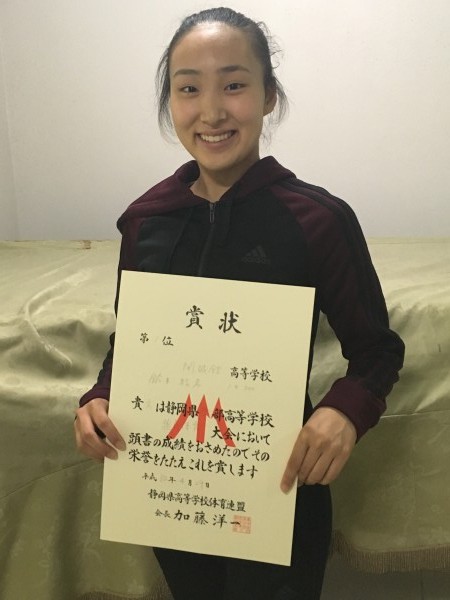 adidas
賞状
第 位
高等学校
貴 は静岡県 部高等学校
大会において
頭書の成績をおさめたのでその
栄誉をたたえこれを賞します
平成 年 月 日
静岡県高等学校体育連盟
会長 加藤洋一